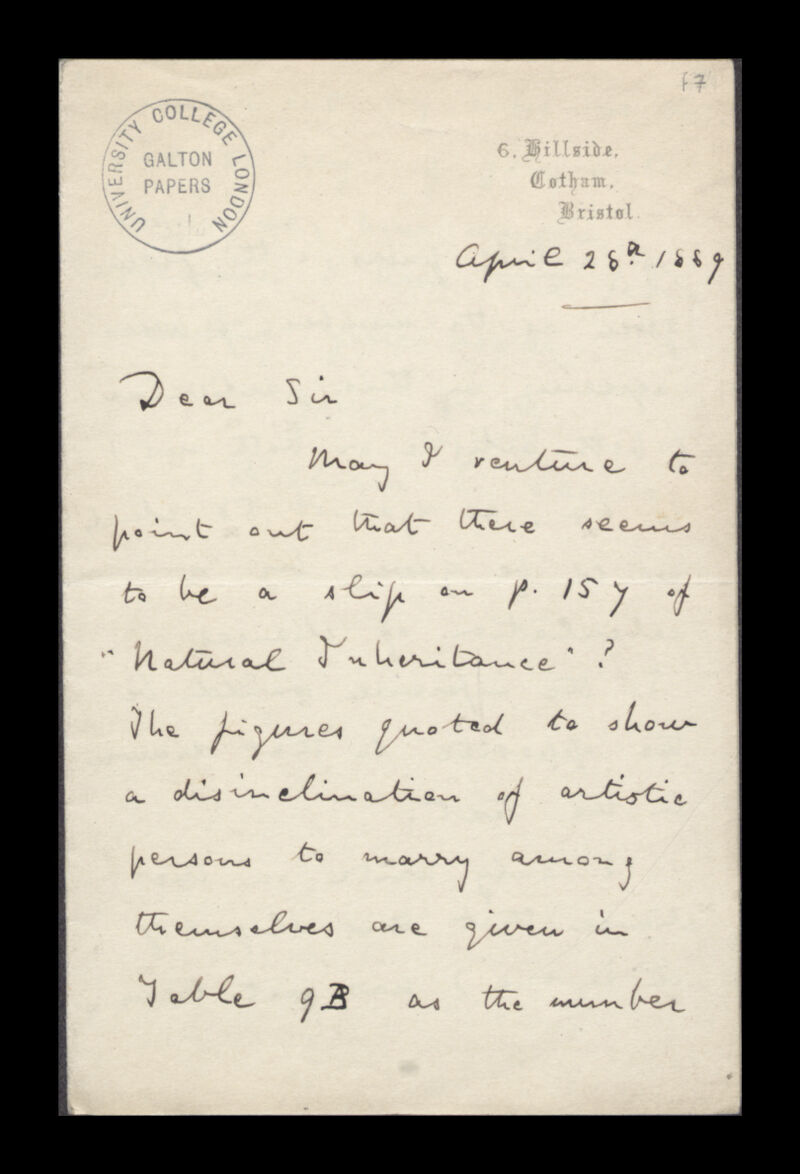 f7
UNIVERSITY COLLEGE LONDON
GALTON
PAPERS
6, Hillside,
Cotham,
Bristol.
April 28th 1889
Dear Sir
May I venture to
point out that there seems
to be a slip on p. 157 of
"Natural Inheritance" ?
The figures quoted to show
a disinclination of artistic
persons to marry among
themselves are given in
Table 9B as the number